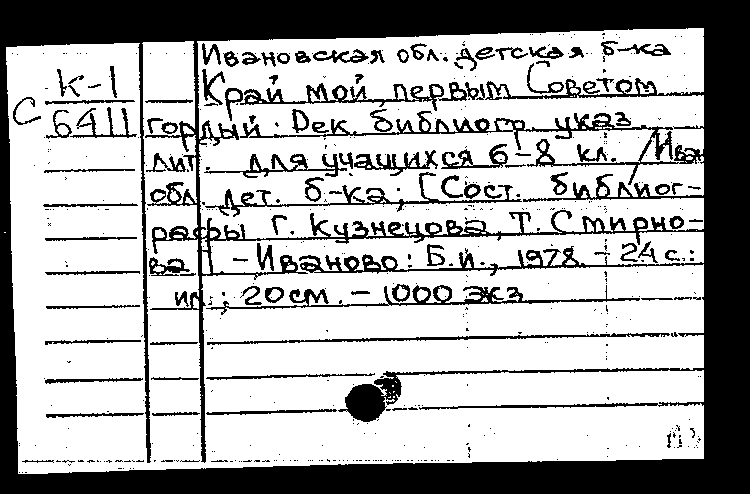 Ивановская обл. детская б-ка
К-1 Край мой, первым Советом
С 6411 гордый: Рек. библиогр. указ.
лит. для учащихся 6-8 кл. / Иван
обл. дет. б-ка; [Сост. библиог-
рафы Г. Кузнецова, Т. Смирно-
ва]. - Иваново: Б.и., 1978. - 24 с.:
ил.; 20 см. - 1000 экз